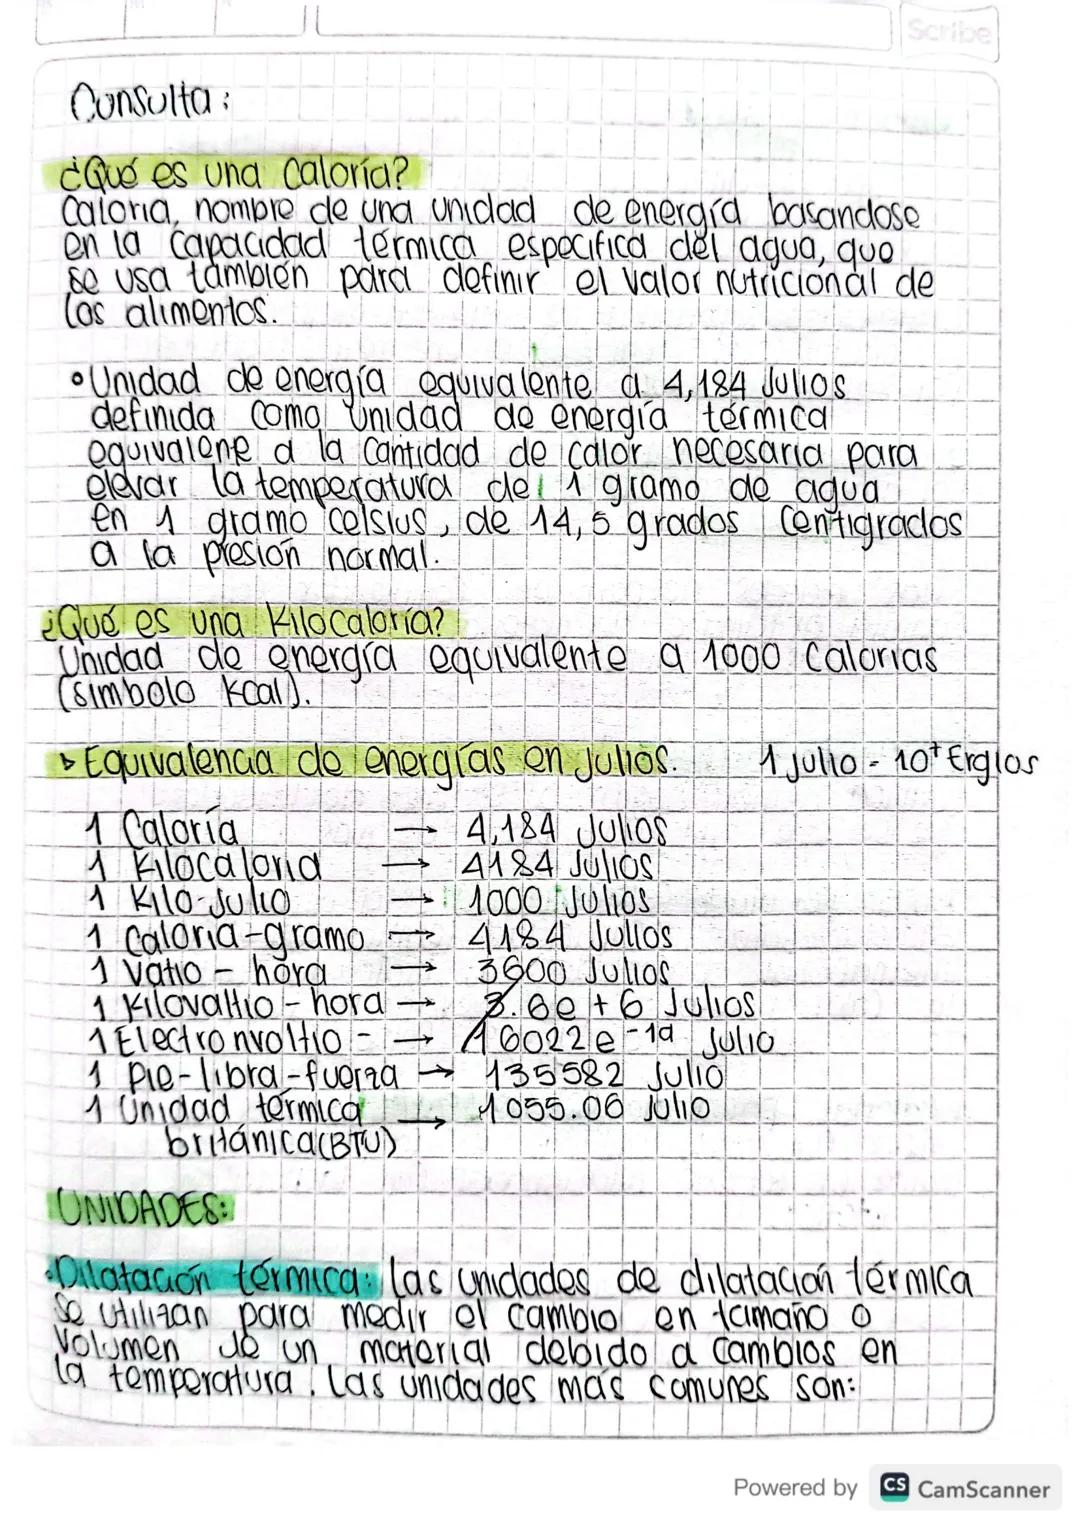 Scribe
Consulta:
¿Qué es una Caloría?
Caloria, nombre de una unidad de energía basandose
en la capacidad térmica especifica del agua, que
se usa también para definir el valor nutricional de
los alimentos.
•Unidad de energía equivalente a 4,184 Julios
definida como unidad de energía térmica
equivalene a la cantidad de calor necesaria para
elevar la temperatura de 1 gramo de agua
en 1 gramo celsius, de 14,5 grados Centigrados
a la presión normal.
¿Qué es una Kilocaloría?
Unidad de energía equivalente a 1000 Calorias
(simbolo Kcal).
▹ Equivalencia de energías en Julios. 1 Julio - 10⁺ Ergios
1 Caloría → 4,184 Julios
1 Kilocaloria → 4184 Julios
1 Kilo-Julio → 1000 Julios
1 Caloria-gramo → 4184 Julios
1 Vatio - hora → 3600 Julios
1 Kilovaltio - hora → 3.6e + 6 Julios
1 Electronvoltio - → 16022e-19 Julio
1 Pie-libra-fuerza → 135582 Julio
1 Unidad térmica → 1055.06 Julio
británica(BTU)
UNIDADES:
•Dilatación térmica: las unidades de dilatación térmica
se utilizan para medir el cambio en tamaño o
volumen de un material debido a cambios en
la temperatura. Las unidades más comunes son:
Powered by CS CamScanner